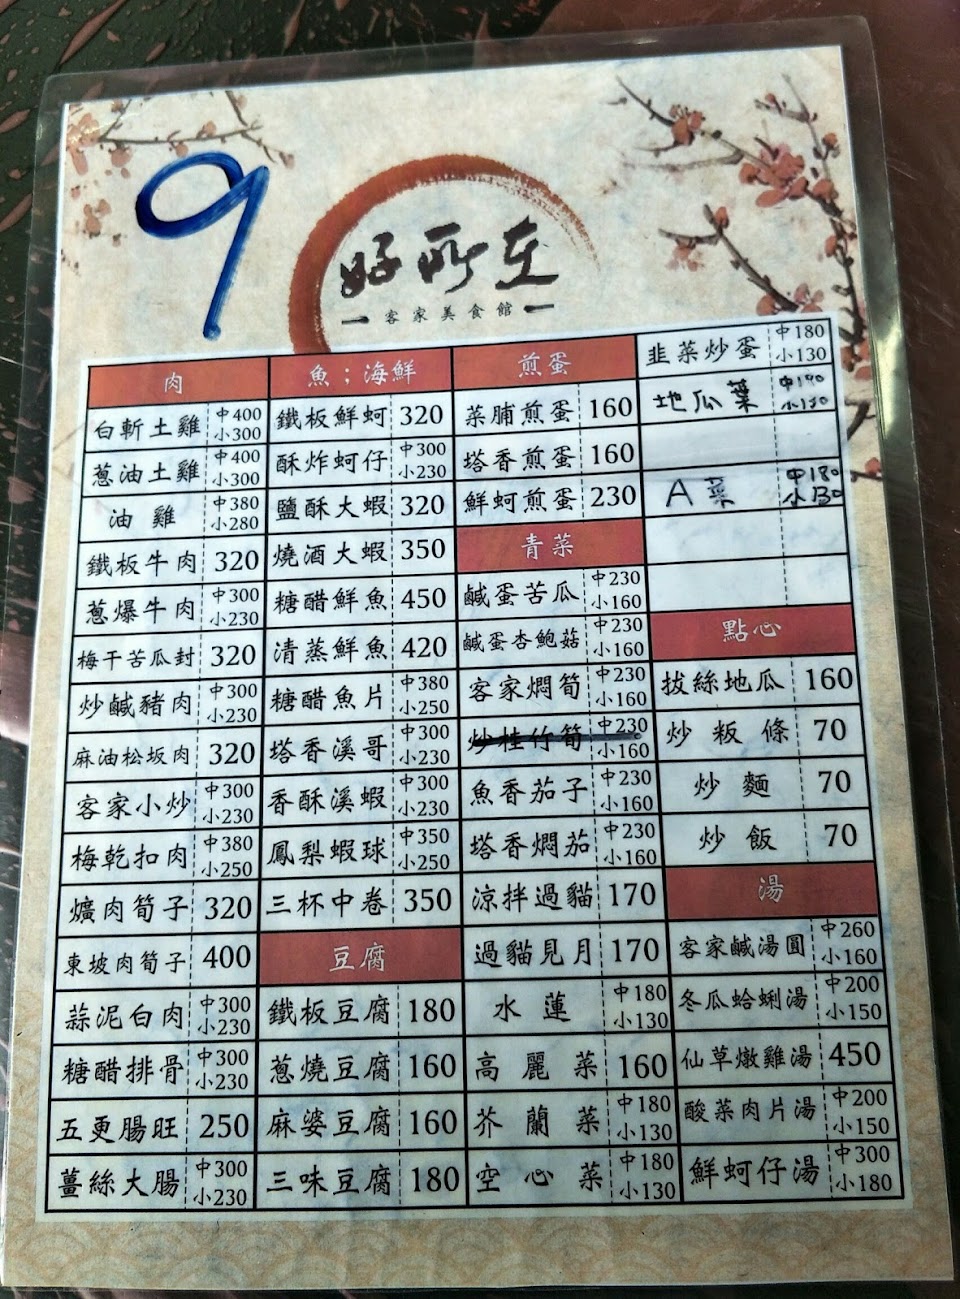 9
好所在
客家美食館
肉
白斬土雞 中400 小300
蔥油土雞 中400 小300
油雞 中380 小280
鐵板牛肉 320
蔥爆牛肉 中300 小230
梅干苦瓜封 320
炒鹹豬肉 中300 小230
麻油松坂肉 320
客家小炒 中300 小230
梅乾扣肉 中380 小250
爌肉筍子 320
東坡肉筍子 400
蒜泥白肉 中300 小230
糖醋排骨 中300 小230
五更腸旺 250
薑絲大腸 中300 小230
魚；海鮮
鐵板鮮蚵 320
酥炸蚵仔 中300 小230
鹽酥大蝦 320
燒酒大蝦 350
糖醋鮮魚 450
清蒸鮮魚 420
糖醋魚片 中380 小250
塔香溪哥 中300 小230
香酥溪蝦 中300 小230
鳳梨蝦球 中350 小250
三杯中卷 350
豆腐
鐵板豆腐 180
蔥燒豆腐 160
麻婆豆腐 160
三味豆腐 180
煎蛋
菜脯煎蛋 160
塔香煎蛋 160
鮮蚵煎蛋 230
青菜
鹹蛋苦瓜 中230 小160
鹹蛋杏鮑菇 中230 小160
客家燜筍 中230 小160
炒桂竹筍 中230 小160
魚香茄子 中230 小160
塔香燜茄 中230 小160
涼拌過貓 170
過貓見月 170
水蓮 中180 小130
高麗菜 160
芥蘭菜 中180 小130
空心菜 中180 小130
韭菜炒蛋 中180 小130
地瓜葉 中190 小130
A菜 中180 小130
點心
拔絲地瓜 160
炒粄條 70
炒麵 70
炒飯 70
湯
客家鹹湯圓 中260 小160
冬瓜蛤蜊湯 中200 小150
仙草燉雞湯 450
酸菜肉片湯 中200 小150
鮮蚵仔湯 中300 小180